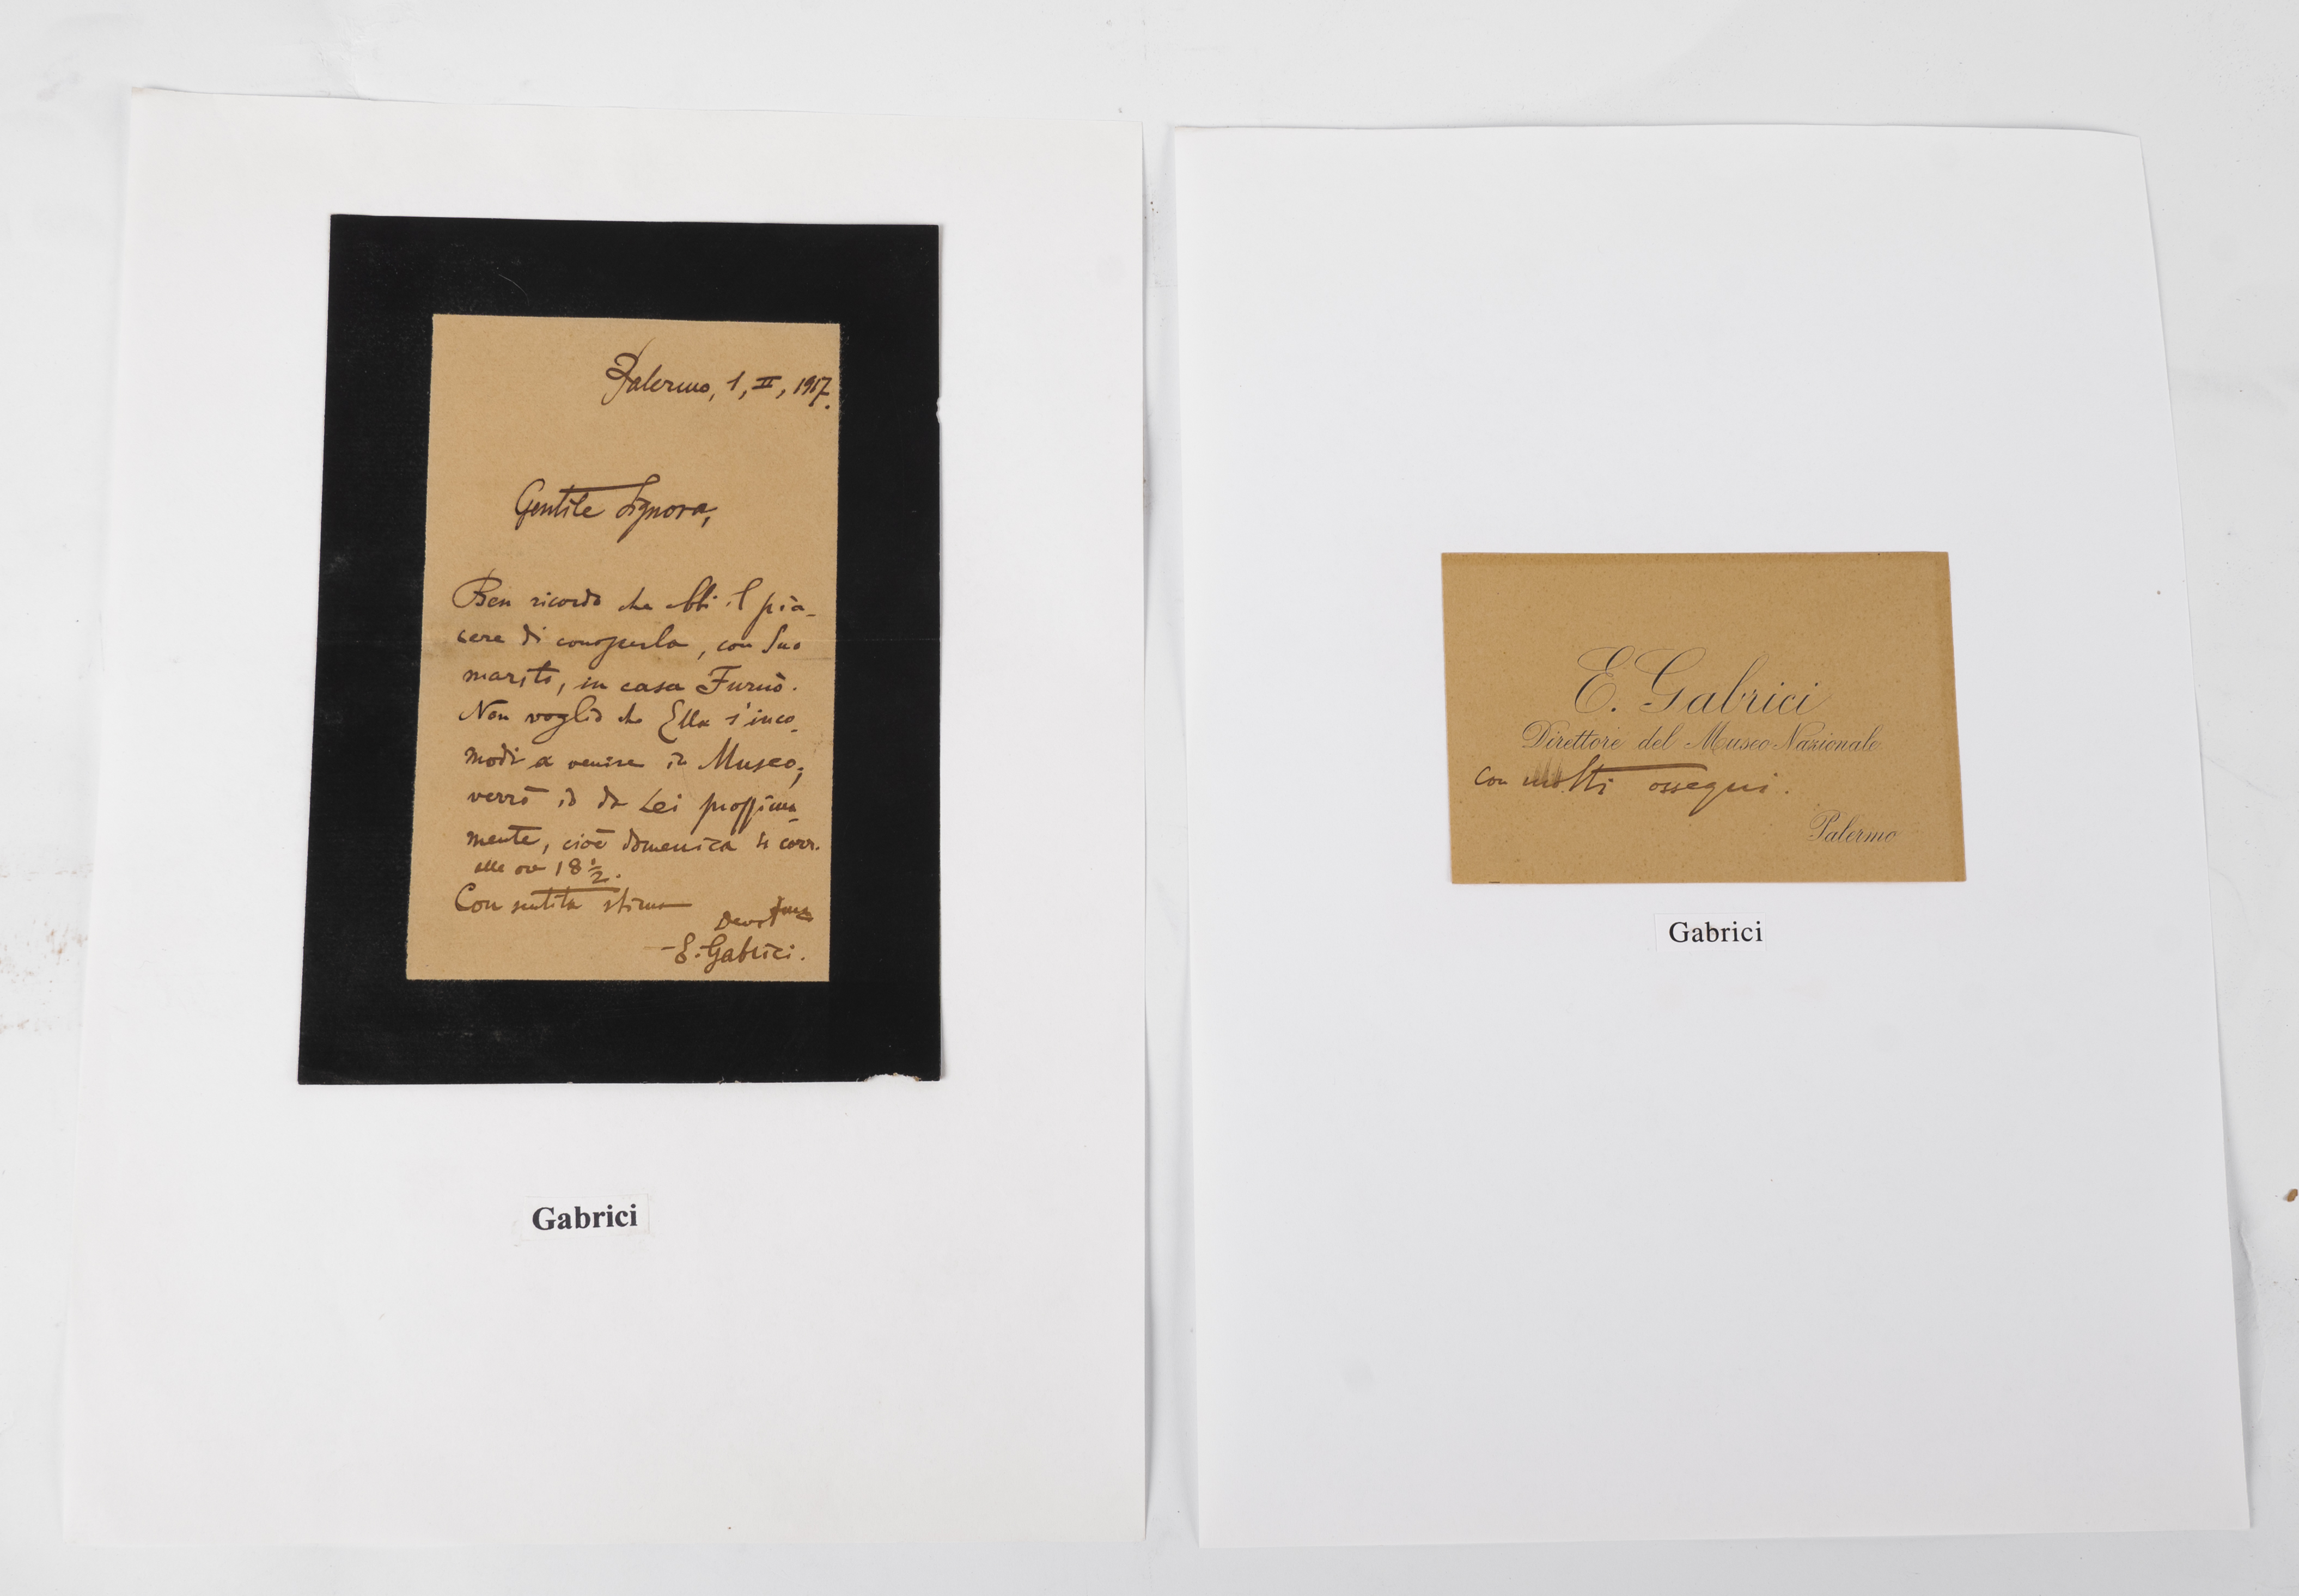 Palermo, 1, II, 1917.
Gentile Signora,
Ben ricordo che ebbi il pia-
cere di conoscerla, con Suo
marito, in casa Furnò.
Non voglio che Ella s'inco-
modi a venire in Museo;
verrò io da Lei prossima-
mente, cioè domenica 4 corr.
alle ore 18 1/2.
Con sentita stima
Devotmo
E. Gabrici.
Gabrici
E. Gabrici
Direttore del Museo Nazionale
con molti ossequi.
Palermo
Gabrici